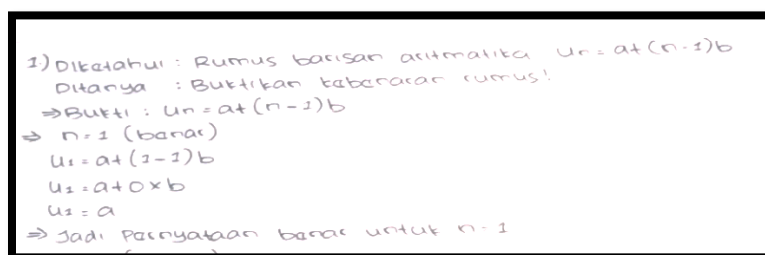 1.) Diketahui : Rumus barisan aritmatika Un = a+(n-1)b
Ditanya : Buktikan kebenaran rumus!
⇒ Bukti : Un = a+(n-1)b
⇒ n=1 (benar)
U1 = a+(1-1)b
U1 = a+0×b
U1 = a
⇒ Jadi Pernyataan benar untuk n-1